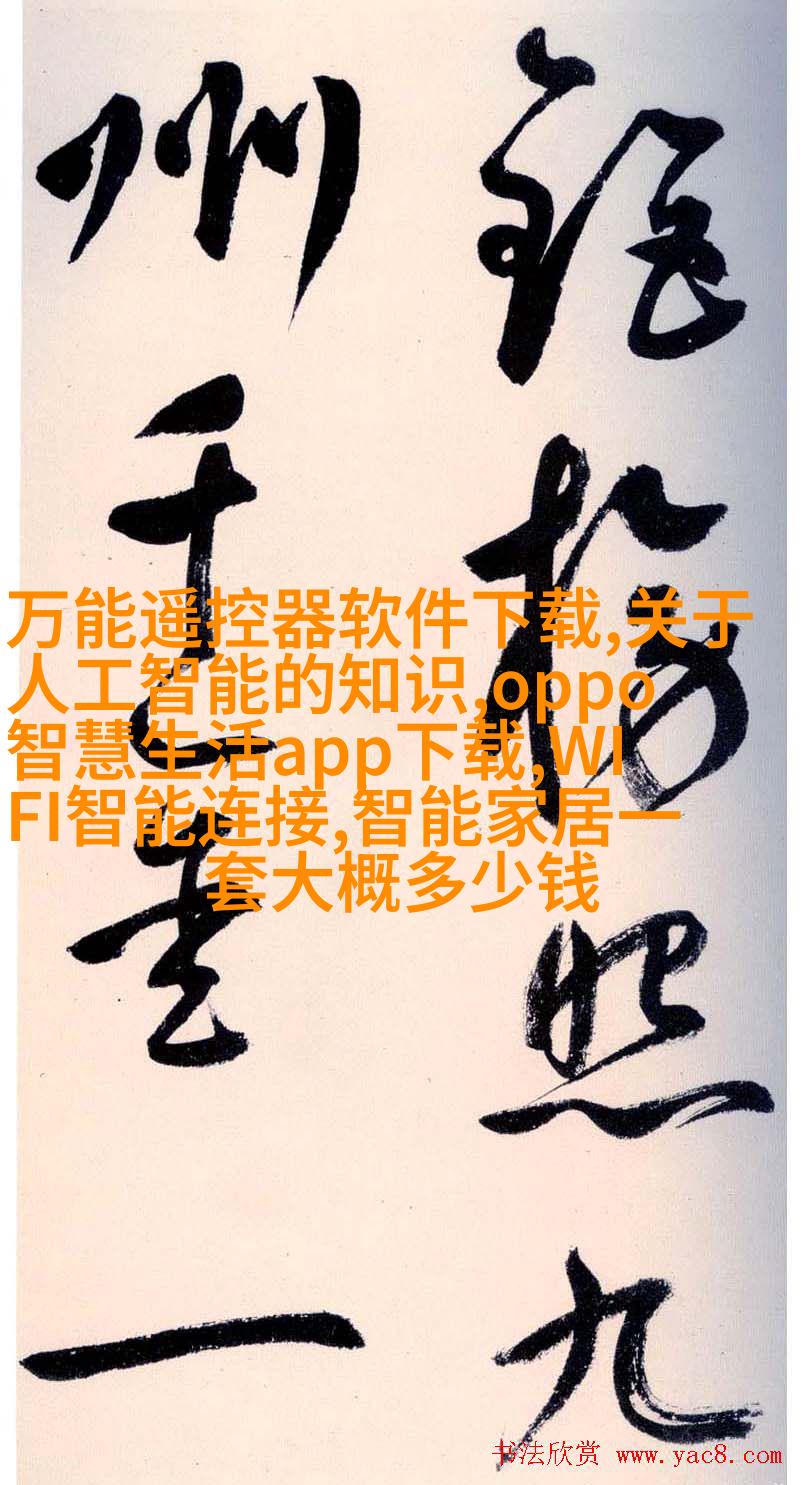 照九
州千一
万能遥控器软件下载,关于
人工智能的知识,oppo
智慧生活app下载,WI
FI智能连接,智能家居一
套大概多少钱
书法欣赏 www.yac8.com